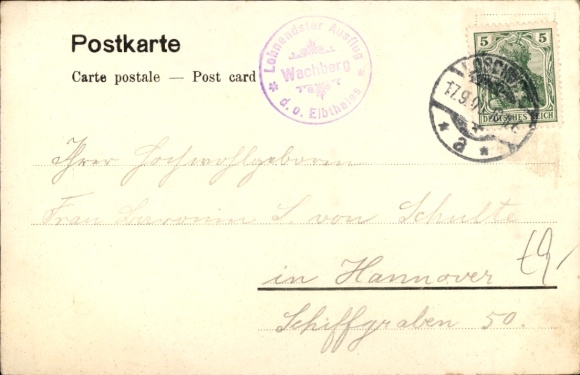 Postkarte
Carte postale — Post card
Lohnendster Ausflug
Wachberg
d. o. Elbthales
5
DEUTSCHES REICH
LOSCHWITZ
17.9.0
* a *
Ihrer Hochwohlgeboren
Frau Baronin S. von Schulte
in Hannover
Schiffgraben 50.